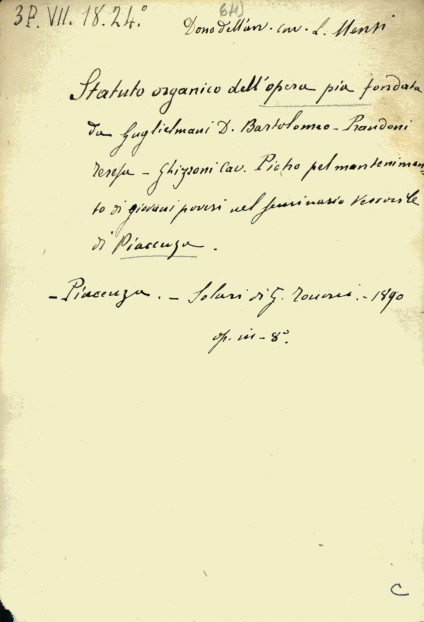 3P. VII. 18. 24.°
Dono dell'avv. cav. L.
Statuto organico dell'opera pia fondata
da Guglielmani D. Bartolomeo - Prandoni
Teresa - Ghizzoni Cav. Pietro pel mantenimen-
to di giovani poveri nel seminario Vescovile
di Piacenza.
- Piacenza. - Solari di G. Tononi. - 1890
op. in - 8°.
C